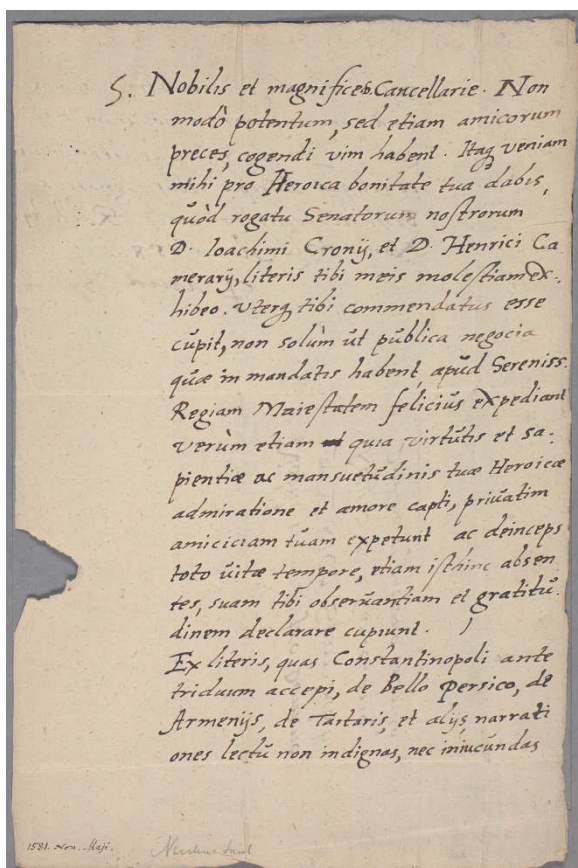 S. Nobilis et magnifice D. Cancellarie. Non
modò potentum, sed etiam amicorum
preces, cogendi vim habent. Itaq veniam
mihi pro Heroica bonitate tua dabis,
quòd rogatu Senatorum nostrorum
D. Ioachimi Cronij, et D. Henrici Ca
merarij, literis tibi meis molestiam ex-
hibeo. Vterq tibi commendatus esse
cupit, non solùm ut publica negocia
quæ in mandatis habent, apud Sereniss.
Regiam Maiestatem felicius expediant
verùm etiam quia virtutis et sa-
pientiæ ac mansuetudinis tuæ Heroicæ
admiratione et amore capti, priuatim
amiciciam tuam expetunt ac deinceps
toto uitæ tempore, etiam isthinc absen
tes, suam tibi obseruantiam et gratitu-
dinem declarare cupiunt.
Ex literis, quas Constantinopoli ante
triduum accepi, de Bello Persico, de
Armenijs, de Tartaris, et alijs narrati
ones lectu non indignas, nec iniucundas
1581. Non. Maji.